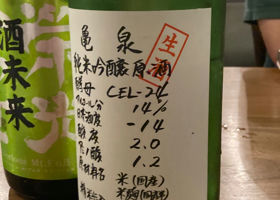 酒未来
亀泉
生酒
純米吟醸原酒
酵母 CEL-24
アルコール分 14%
日本酒度 -14
酸度 2.0
アミノ酸 1.2
原材料名 米(国産)
米麹(国産米)